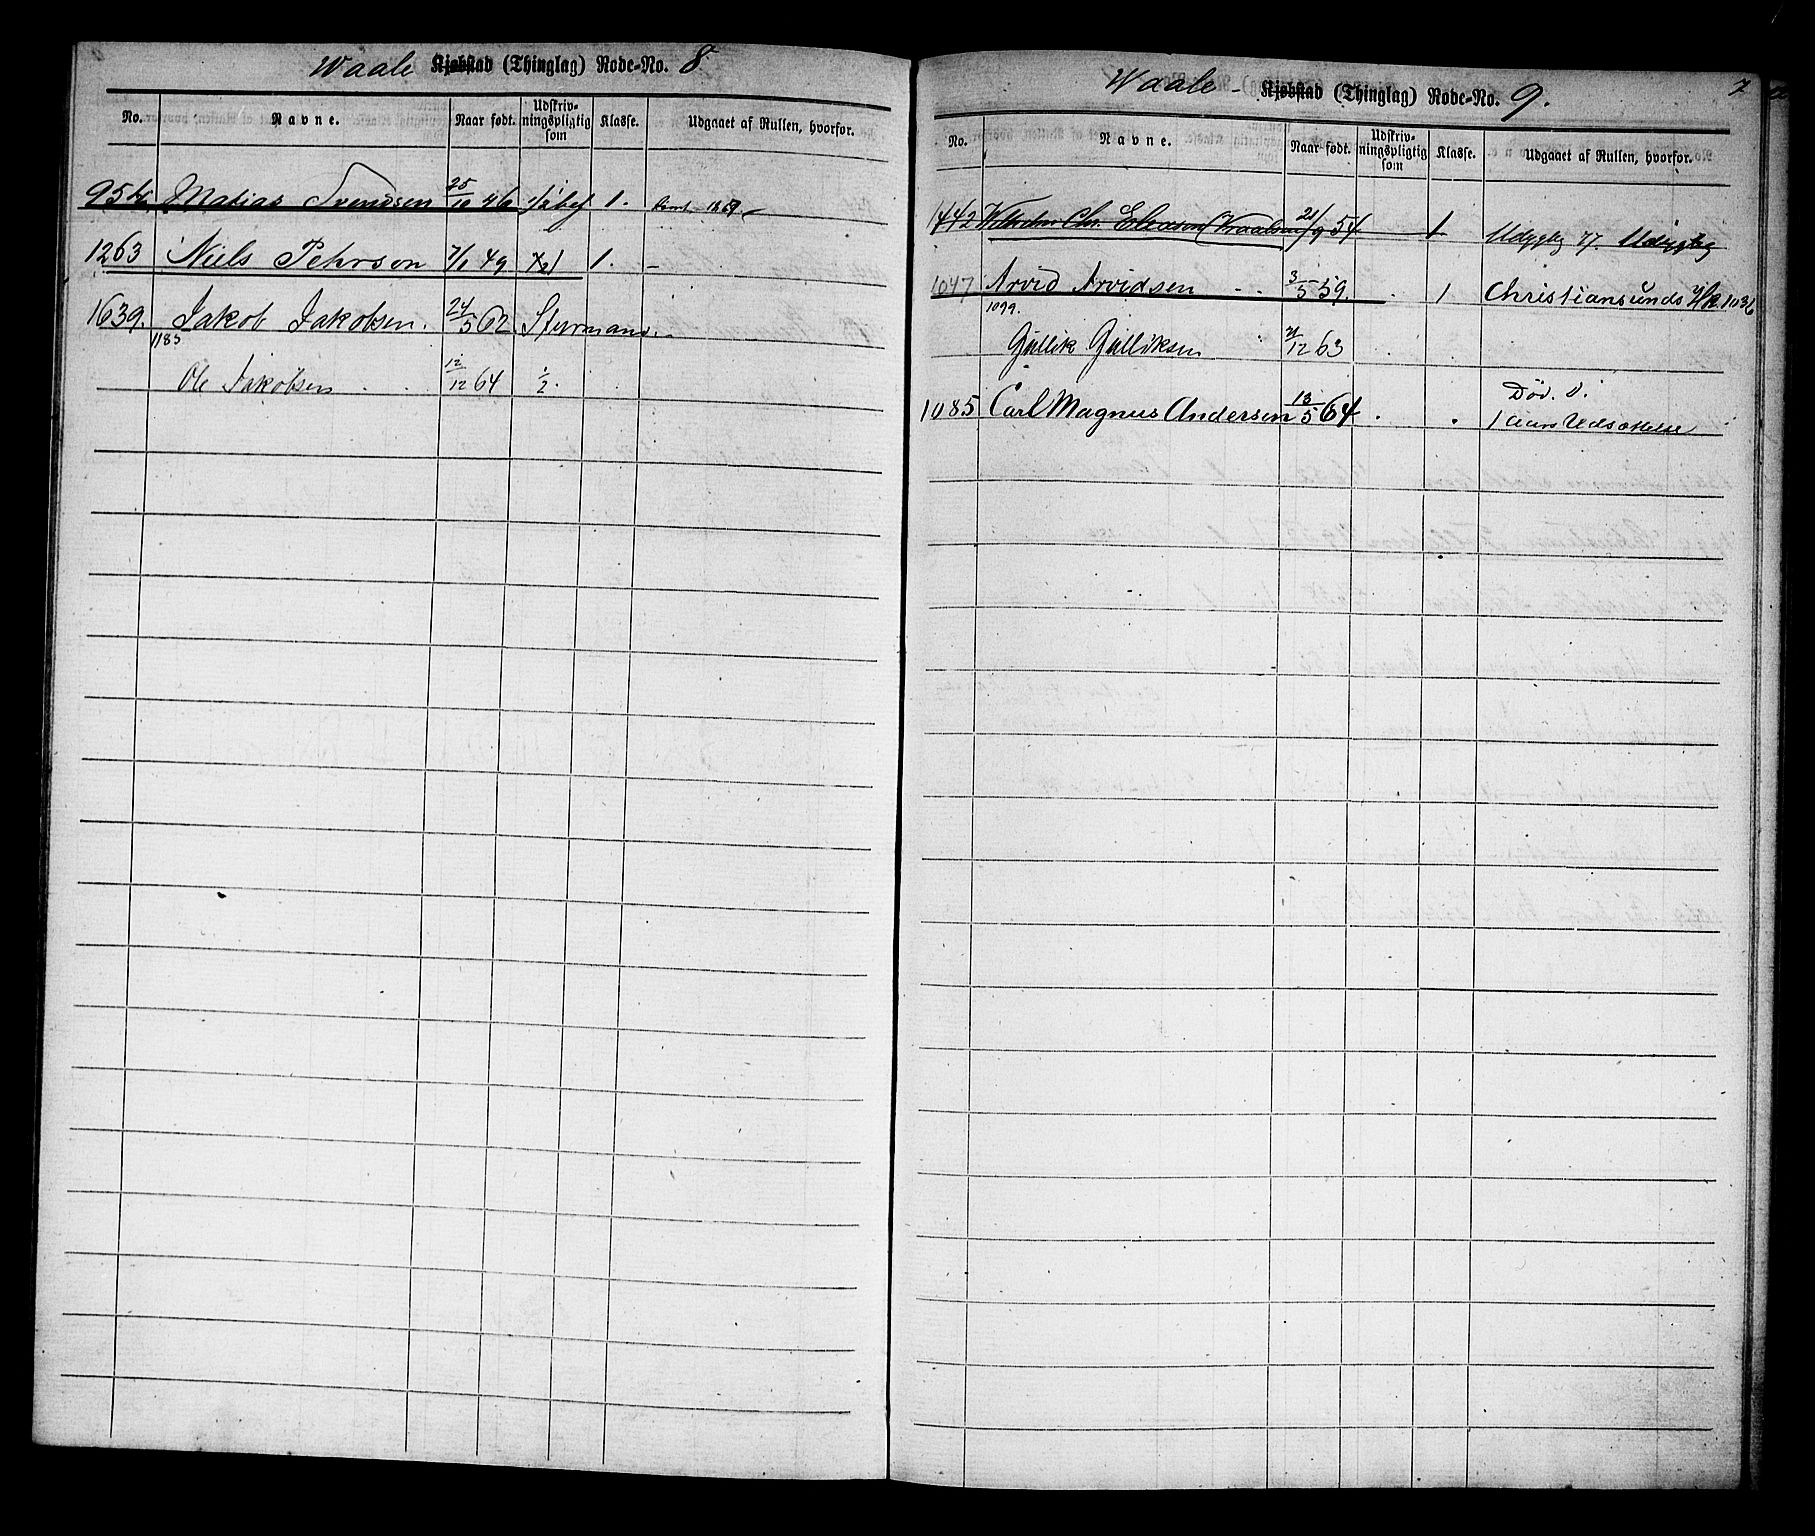 Waale Kjøbstad (Thinglag) Rode-No. 8
No. Navne. Naar født. Udskrivningspligtig som Klasse. Udgaaet af Rullen, hvorfor.
954 Matias Svendsen 25/10 46 1.
1263 Niels Pehrson 7/1 49 1/2 1. -
1639. Jakob Jakobsen. 24/5 62 Styrmand.
1185
Ole Jakobsen 12/12 64 1/2.
Waale - Kjøbstad (Thinglag) Rode-No. 9. 7
No. Navne. Naar født. Udskrivningspligtig som Klasse. Udgaaet af Rullen, hvorfor.
1442 Chr. 21/9 54 1 Udygtig 77. Udygtig
1047 Arvid Arvidsen 3/5 59. 1 Christiansunds 1036
1099.
Gullik Gulliksen 21/12 63
1085 Carl Magnus Andersen 13/5 64 Død.
1 Aars Udsættelse